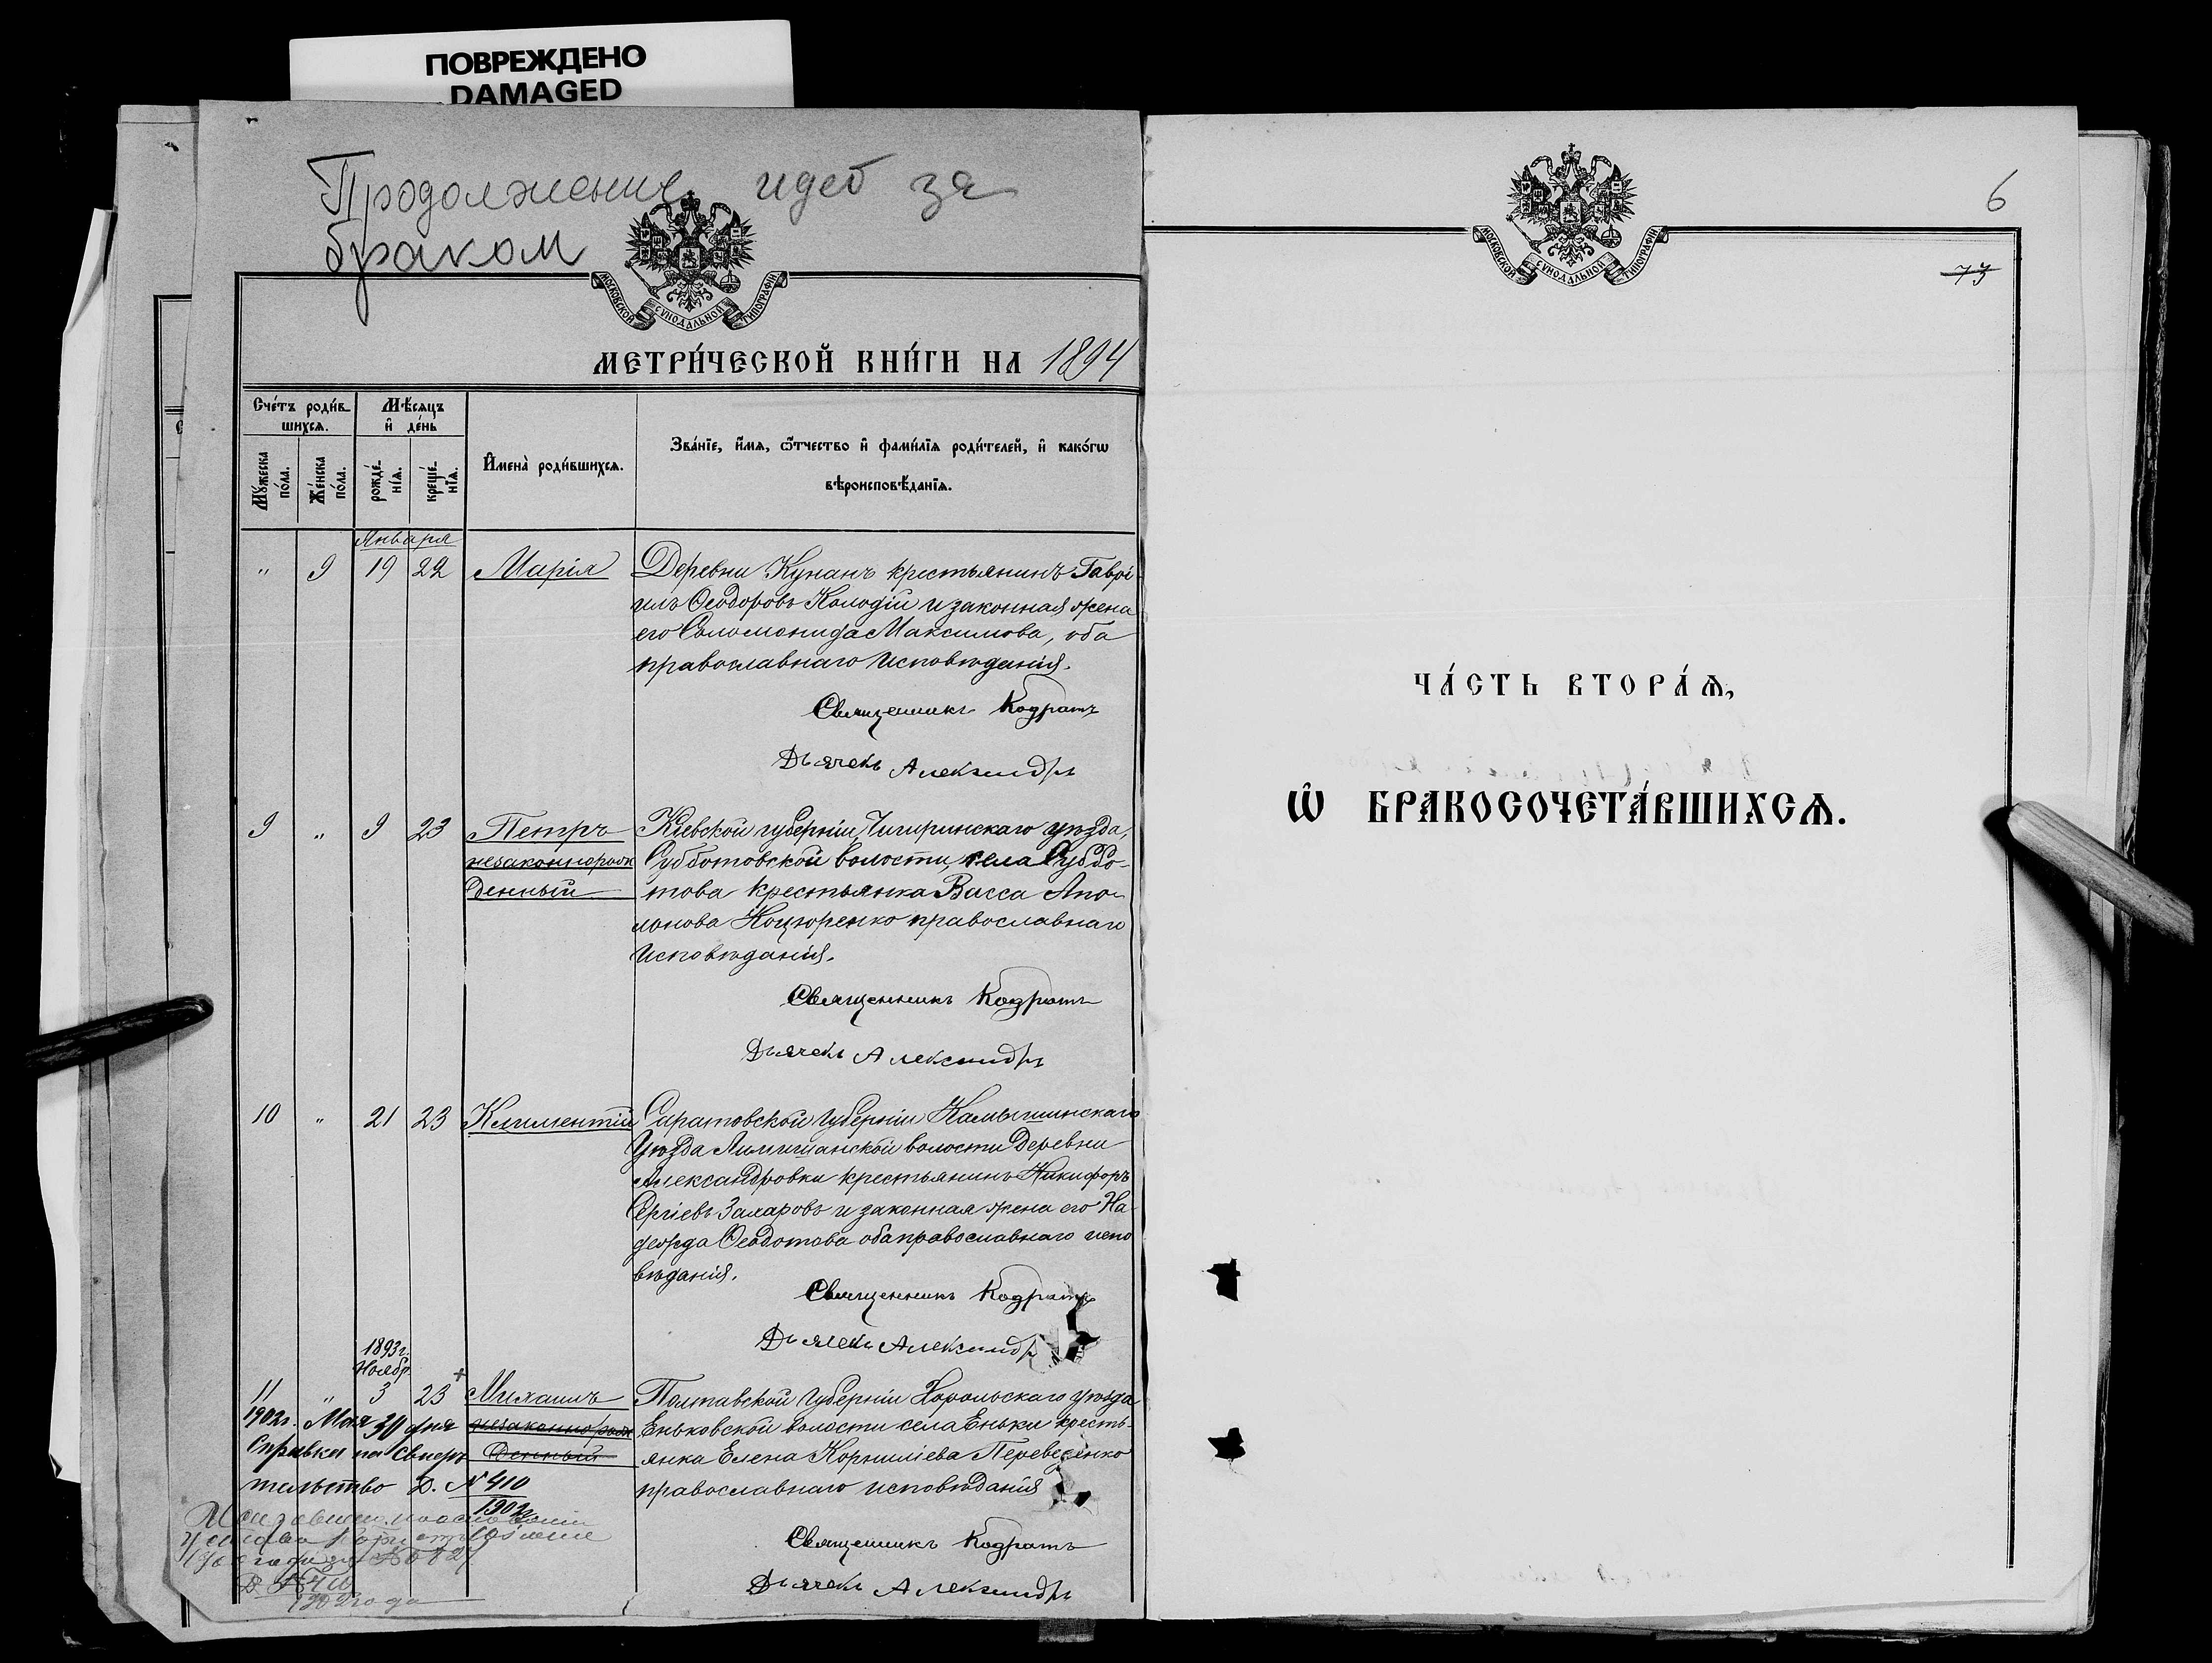 ПОВРЕЖДЕНО
DAMAGED
Продолжение идет за
браком
МОСКОВСКОЙ СѴНОДАЛЬНОЙ ТИПОГРАФІИ
МЕТРИ́ЧЕСКОЙ КНИ́ГИ НА 1894
Сче́тъ роди́в-
шихсѧ.
Мꙋ́жеска
по́ла.
Же́нска
по́ла.
Мѣ́сѧцъ
и҆ де́нь
рожде́-
нїѧ.
креще́-
нїѧ.
И҆мена̀ роди́вшихсѧ.
Зва́нїе, и҆́мѧ, ѻ҆́тчество и҆ фами́лїѧ роди́телей, и҆ како́гѡ
вѣроисповѣ́данїѧ.
Января
" 9 19 22 Марія
Деревни Кунанъ крестьянинъ Гаврі-
илъ Ѳеодоровъ Колодій и законная жена
его Соломонида Максимова, оба
православнаго исповѣданія.
Священникъ Кодратъ
Дьячекъ Александръ
9 " 9 23 Петръ
незаконнорож
денный
Кіевской губерніи, Чигиринскаго уѣзда,
Субботовской волости, села Суббо-
това крестьянка Васса Апо-
лонова Коцюренко православнаго
исповѣданія.
Священникъ Кодратъ
Дьячекъ Александръ
10 " 21 23 Климентій
Саратовской губерніи Камышинскаго
уѣзда волости деревни
Александровки крестьянинъ Никифоръ
Сергіевъ Захаровъ и законная жена его На-
дежда Ѳеодотова оба православнаго испо
вѣданія.
Священникъ Кодратъ
Дьячекъ Александръ
1893г.
Ноябр.
11 " 3 23 Михаилъ
незаконнорож
денный
Полтавской губерніи Хорольскаго уѣзда
Еньковской волости села Еньки кресть-
янка Елена Корниліева
православнаго исповѣданія
Священникъ Кодратъ
Дьячекъ Александръ
1902г. Мая 30 дня
Справка на Свидѣ
тельство Д. № 410
1902
1902 года
МОСКОВСКОЙ СѴНОДАЛЬНОЙ ТИПОГРАФІИ
6
73
ЧА́СТЬ ВТОРА́Ѧ,
Ѡ҆ БРАКОСОЧЕТА́ВШИХСѦ.